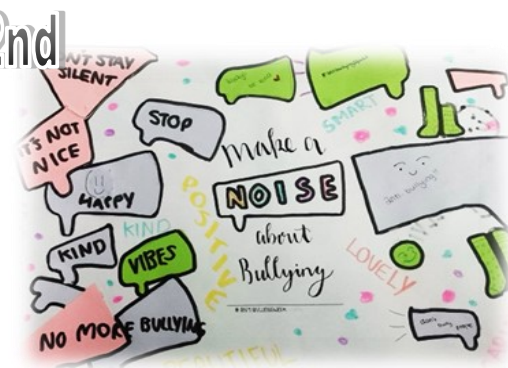 2nd
N'T STAY
SILENT
IT'S NOT
NICE
STOP
HAPPY
KIND
KIND
VIBES
NO MORE BULLYING
POSITIVE
make a
NOISE
about
Bullying
SMART
LOVELY
BEAUTIFUL